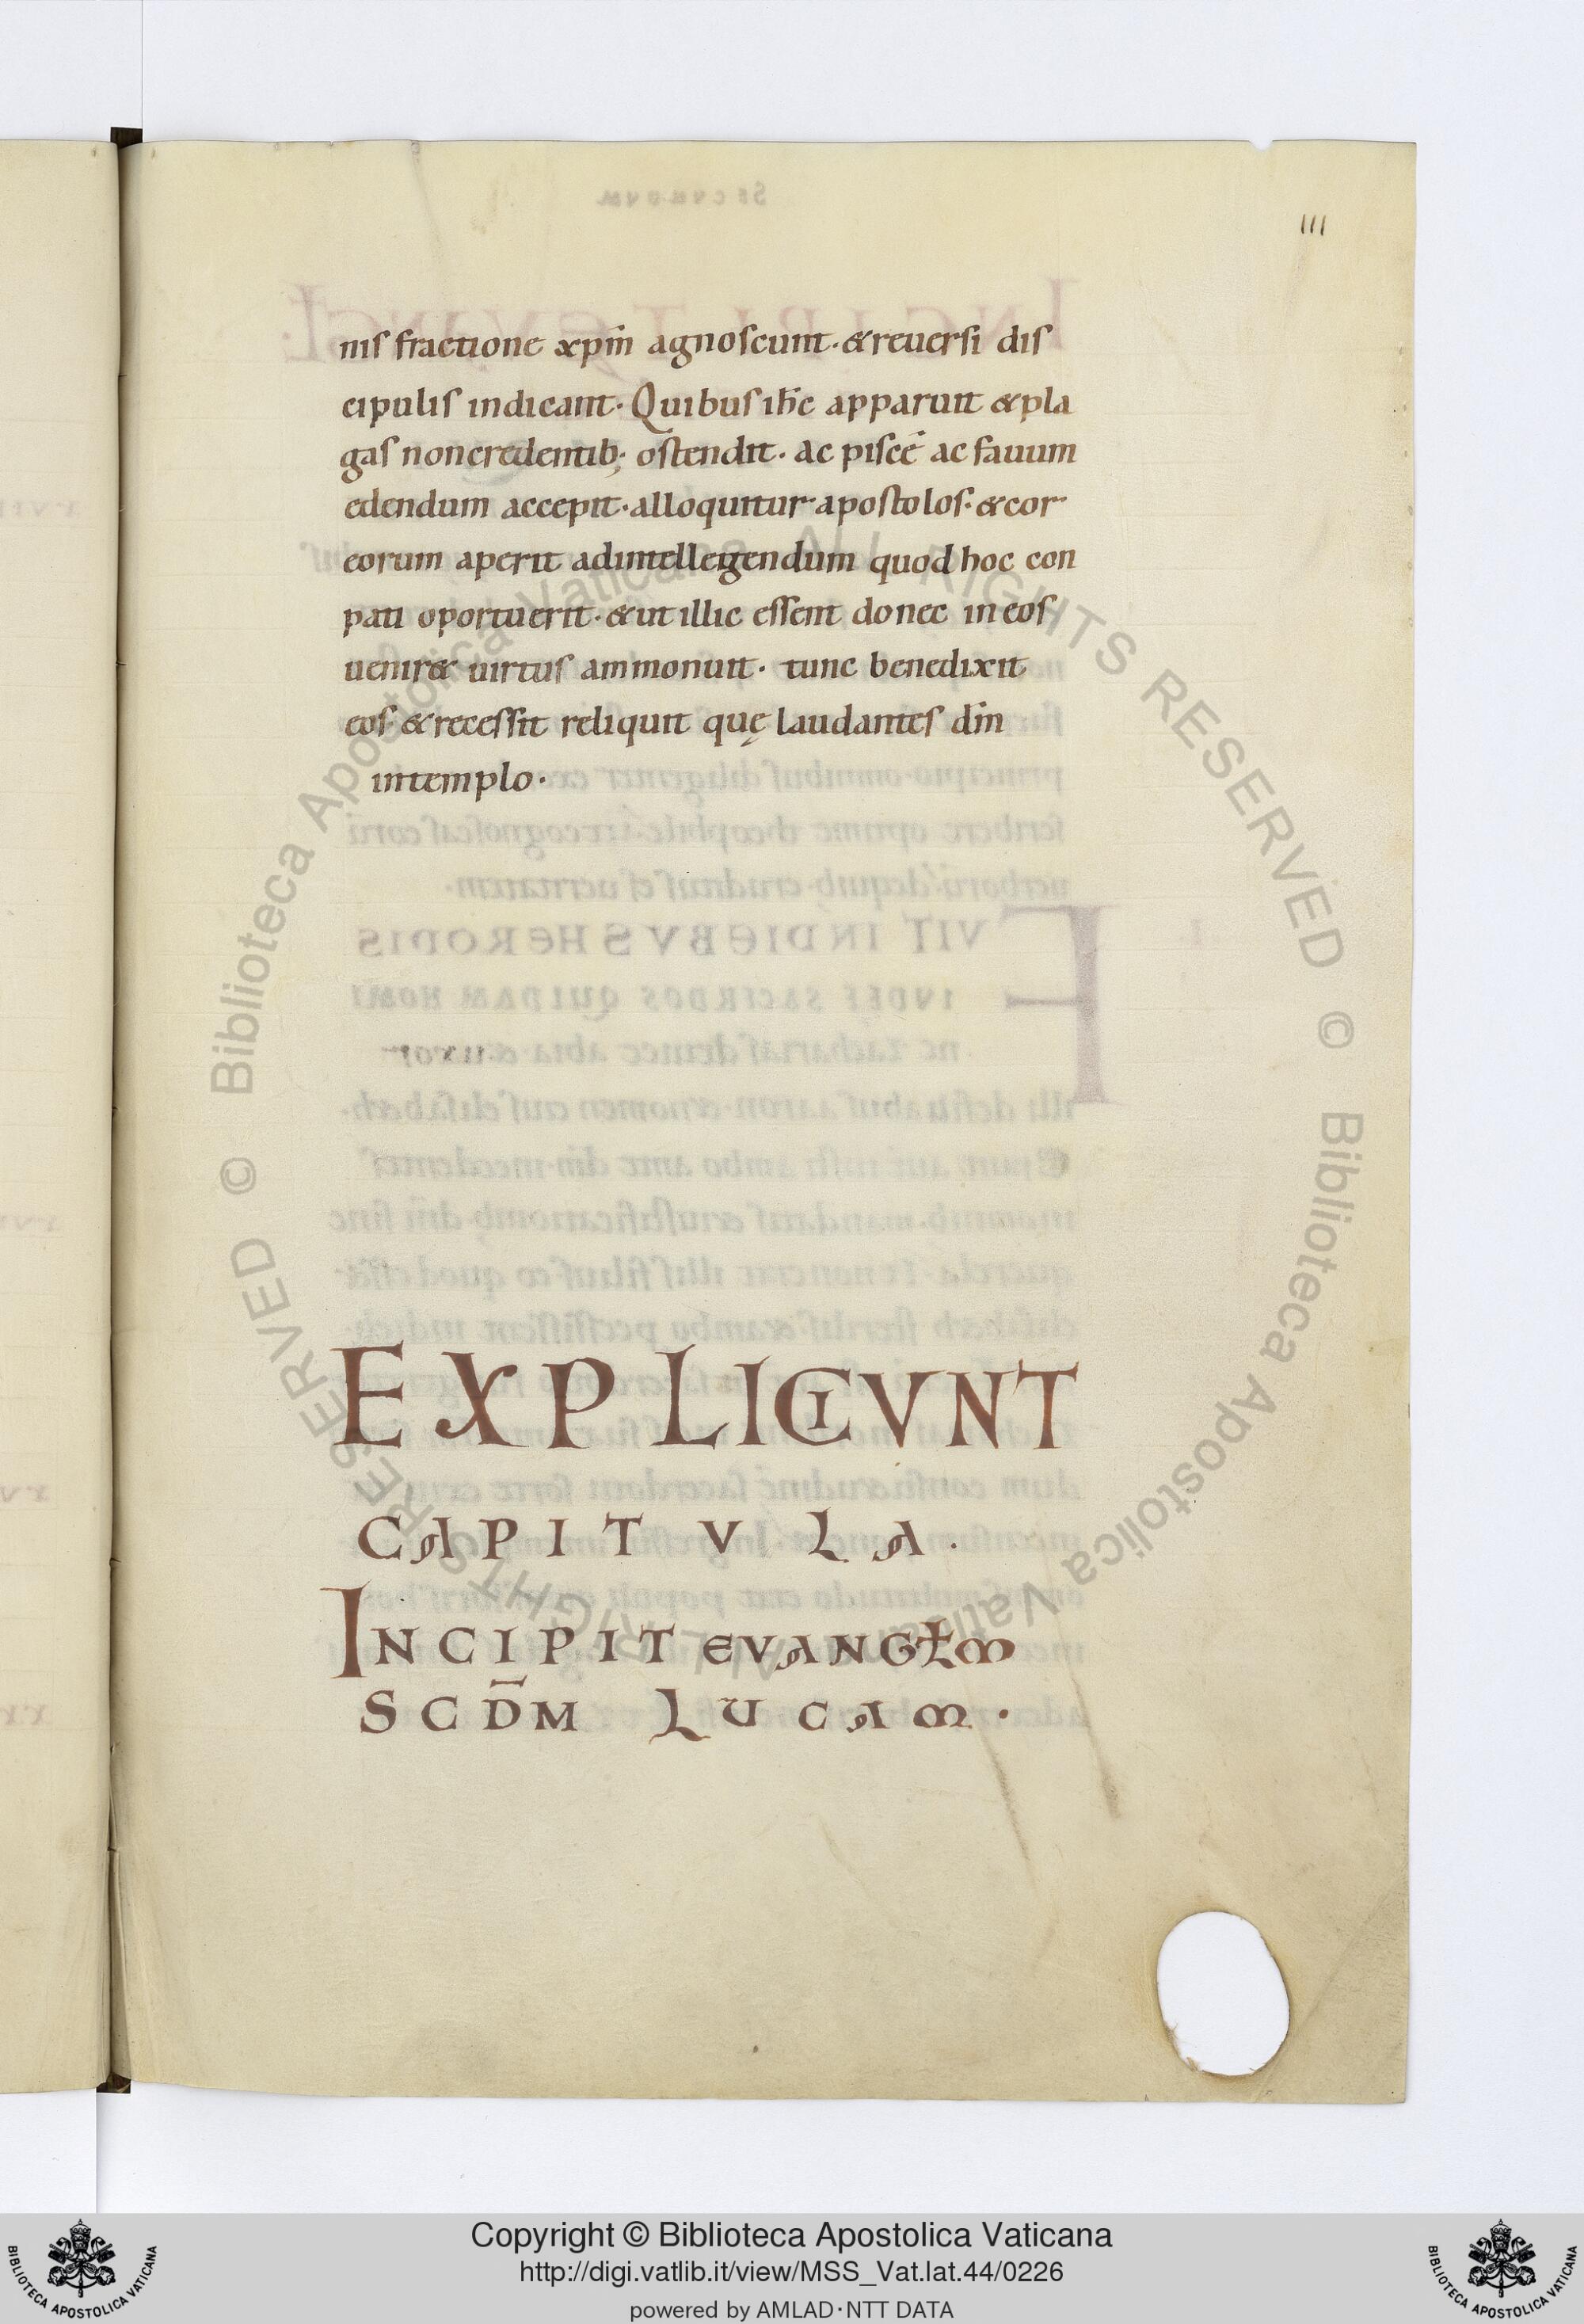 111
nis fractione xp̄m agnoscunt· & reuersi dis
cipulis indicant· Quibus ih̄c apparuit & pla
gas non credentib; ostendit· ac piscē ac fauum
edendum accepit· alloquitur apostolos· & cor
eorum aperit ad intellegendum quod hoc con
pati oportuerit· & ut illic essent donec in eos
uenir& uirtus ammonuit· tunc benedixit
eos· & recessit reliquit quę laudantes dm̄
in templo·
EXPLICIUNT
CAPITVLA·
INCIPIT EVANGŁM
SCD̄M LUCAM·
Copyright © Biblioteca Apostolica Vaticana
http://digi.vatlib.it/view/MSS_Vat.lat.44/0226
powered by AMLAD·NTT DATA
BIBLIOTECA APOSTOLICA VATICANA
BIBLIOTECA APOSTOLICA VATICANA
© Biblioteca Apostolica Vaticana ALL RIGHTS RESERVED
© Biblioteca Apostolica Vaticana ALL RIGHTS RESERVED